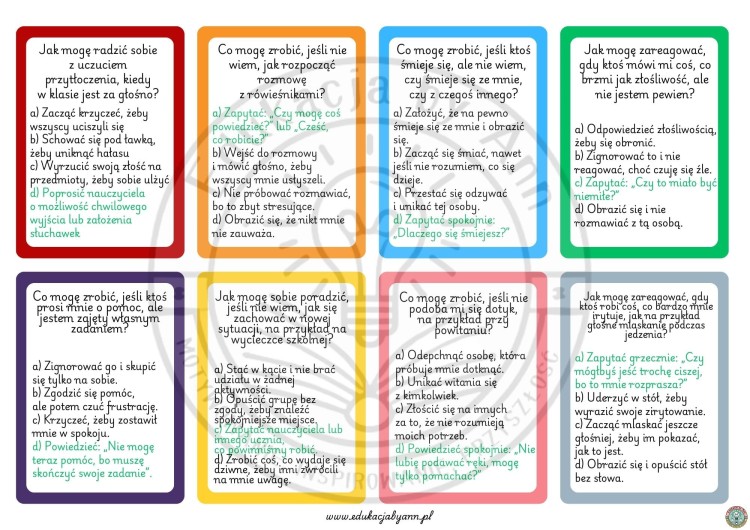 Jak mogę radzić sobie
z uczuciem
przytłoczenia, kiedy
w klasie jest za głośno?
a) Zacząć krzyczeć, żeby
wszyscy uciszyli się
b) Schować się pod ławką,
żeby uniknąć hałasu
c) Wyrzucić swoją złość na
przedmioty, żeby sobie ulżyć
d) Poprosić nauczyciela
o możliwość chwilowego
wyjścia lub założenia
słuchawek
Co mogę zrobić, jeśli nie
wiem, jak rozpocząć
rozmowę
z rówieśnikami?
a) Zapytać: „Czy mogę coś
powiedzieć?” lub „Cześć,
co robicie?”
b) Wejść do rozmowy
i mówić głośno, żeby
wszyscy mnie usłyszeli.
c) Nie próbować rozmawiać,
bo to zbyt stresujące.
d) Obrazić się, że nikt mnie
nie zauważa.
Co mogę zrobić, jeśli ktoś
śmieje się, ale nie wiem,
czy śmieje się ze mnie,
czy z czegoś innego?
a) Założyć, że na pewno
śmieje się ze mnie i obrazić
się.
b) Zacząć się śmiać, nawet
jeśli nie rozumiem, co się
dzieje.
c) Przestać się odzywać
i unikać tej osoby.
d) Zapytać spokojnie:
„Dlaczego się śmiejesz?”
Jak mogę zareagować,
gdy ktoś mówi mi coś, co
brzmi jak złośliwość, ale
nie jestem pewien?
a) Odpowiedzieć złośliwością,
żeby się obronić.
b) Zignorować to i nie
reagować, choć czuję się źle.
c) Zapytać: „Czy to miało być
niemiłe?”
d) Obrazić się i nie
rozmawiać z tą osobą.
Co mogę zrobić, jeśli ktoś
prosi mnie o pomoc, ale
jestem zajęty własnym
zadaniem?
a) Zignorować go i skupić
się tylko na sobie.
b) Zgodzić się pomóc,
ale potem czuć frustrację.
c) Krzyczeć, żeby zostawił
mnie w spokoju.
d) Powiedzieć: „Nie mogę
teraz pomóc, bo muszę
skończyć swoje zadanie”.
Jak mogę sobie poradzić,
jeśli nie wiem, jak się
zachować w nowej
sytuacji, na przykład na
wycieczce szkolnej?
a) Stać w kącie i nie brać
udziału w żadnej
aktywności.
b) Opuścić grupę bez
zgody, żeby znaleźć
spokojniejsze miejsce.
c) Zapytać nauczyciela lub
innego ucznia,
co powinniśmy robić.
d) Zrobić coś, co wydaje się
dziwne, żeby inni zwrócili
na mnie uwagę.
Co mogę zrobić, jeśli nie
podoba mi się dotyk,
na przykład przy
powitaniu?
a) Odepchnąć osobę, która
próbuje mnie dotknąć.
b) Unikać witania się
z kimkolwiek.
c) Złościć się na innych
za to, że nie rozumieją
moich potrzeb.
d) Powiedzieć spokojnie: „Nie
lubię podawać ręki, mogę
tylko pomachać?”
Jak mogę zareagować, gdy
ktoś robi coś, co bardzo mnie
irytuje, jak na przykład
głośne mlaskanie podczas
jedzenia?
a) Zapytać grzecznie: „Czy
mógłbyś jeść trochę ciszej,
bo to mnie rozprasza?”
b) Uderzyć w stół, żeby
wyrazić swoje zirytowanie.
c) Zacząć mlaskać jeszcze
głośniej, żeby im pokazać,
jak to jest.
d) Obrazić się i opuścić stół
bez słowa.
www.edukacjabyann.pl